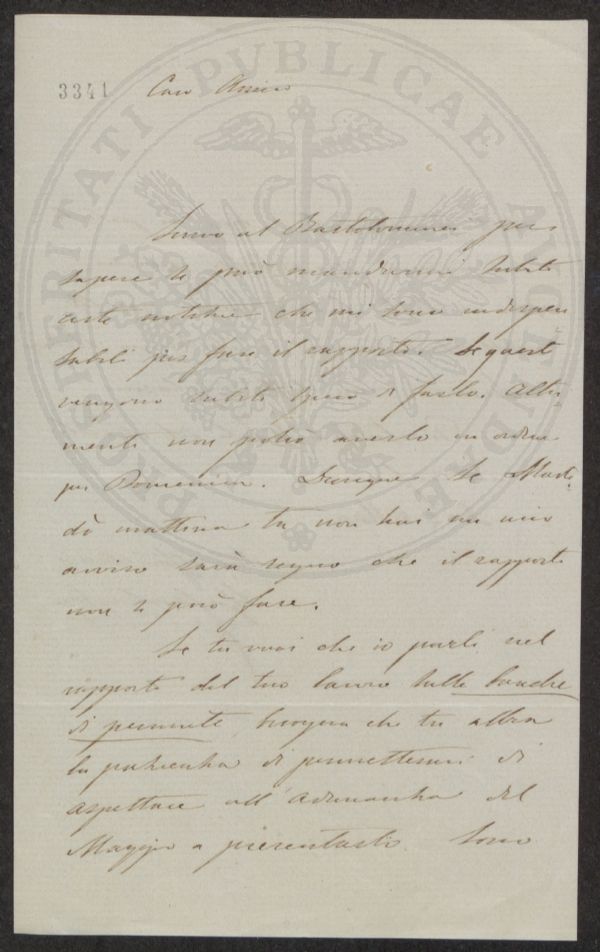 PROSPERITATI PUBLICAE AVGENDAE
3341
Caro Amico
Scrivo al Bartolommei per
sapere se può mandarmi subito
certe notizie che mi sono indispen
sabili per fare il rapporto. Se queste
vengono subito spero di farlo. Altri=
menti non potrò averlo in ordine
per Domenica. Dunque se Marte
dì mattina tu non hai un mio
avviso sarà segno che il rapporto
non si può fare.
Se tu vuoi che io parli nel
rapporto del tuo lavoro sulle banche
di bisogna che tu abbia
la pazienza di permettermi di
aspettare all'Adunanza del
Maggio a presentarlo. Sono